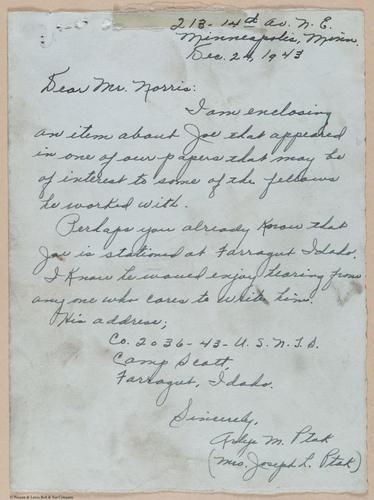 213-14th Av. N.E.
Minneapolis, Minn.
Dec. 29, 1943
Dear Mr. Norris:
I am enclosing
an item about Joe that appeared
in one of our papers that may be
of interest to some of the fellows
he worked with.
Perhaps you already know that
Joe is stationed at Farragut Idaho.
I know he would enjoy hearing from
any one who cares to write him.
His address;
Co. 2036-43-U.S.N.T.S.
Camp Scott,
Farragut, Idaho.
Sincerely,
M. Ptak
(Mrs. Joseph L. Ptak)